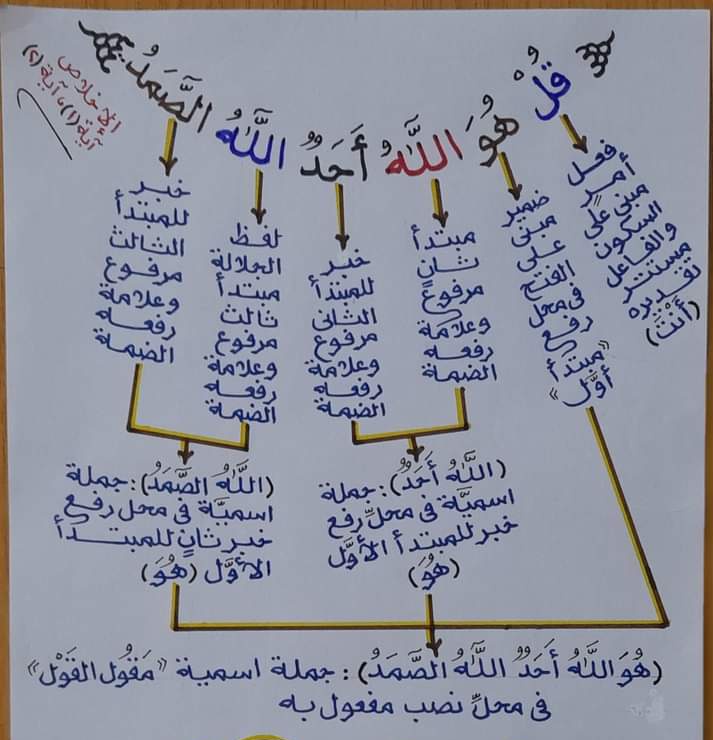 قُلْ هُوَ اللَّهُ أَحَدٌ اللَّهُ الصَّمَدُ
الإخلاص
آية (١)، آية (٢)
فعل
أمر
مبنىٌّ على
السكون
والفاعل
مستتر
تقديره
(أَنْتَ)
ضمير
مبنى
على
الفتح
فى محل
رفع
«مبتدأ
أوَّل»
مبتدأ
ثانٍ
مرفوع
وعلامة
رفعه
الضمة
خبر
للمبتدأ
الثانى
مرفوع
وعلامة
رفعه
الضمة
لفظ
الجلالة
مبتدأ
ثالث
مرفوع
وعلامة
رفعه
الضمة
خبر
للمبتدأ
الثالث
مرفوع
وعلامة
رفعه
الضمة
(اللَّهُ أَحَدٌ): جملة
اسميَّة فى محلِّ رفع
خبر للمبتدأ الأوَّل
(هُوَ)
(اللَّهُ الصَّمَدُ): جملة
اسميَّة فى محل رفع
خبر ثانٍ للمبتدأ
الأوَّل (هُوَ)
(هُوَ اللَّهُ أَحَدٌ اللَّهُ الصَّمَدُ): جملة اسمية «مَقُول القَوْل»
فى محلِّ نصب مفعول به